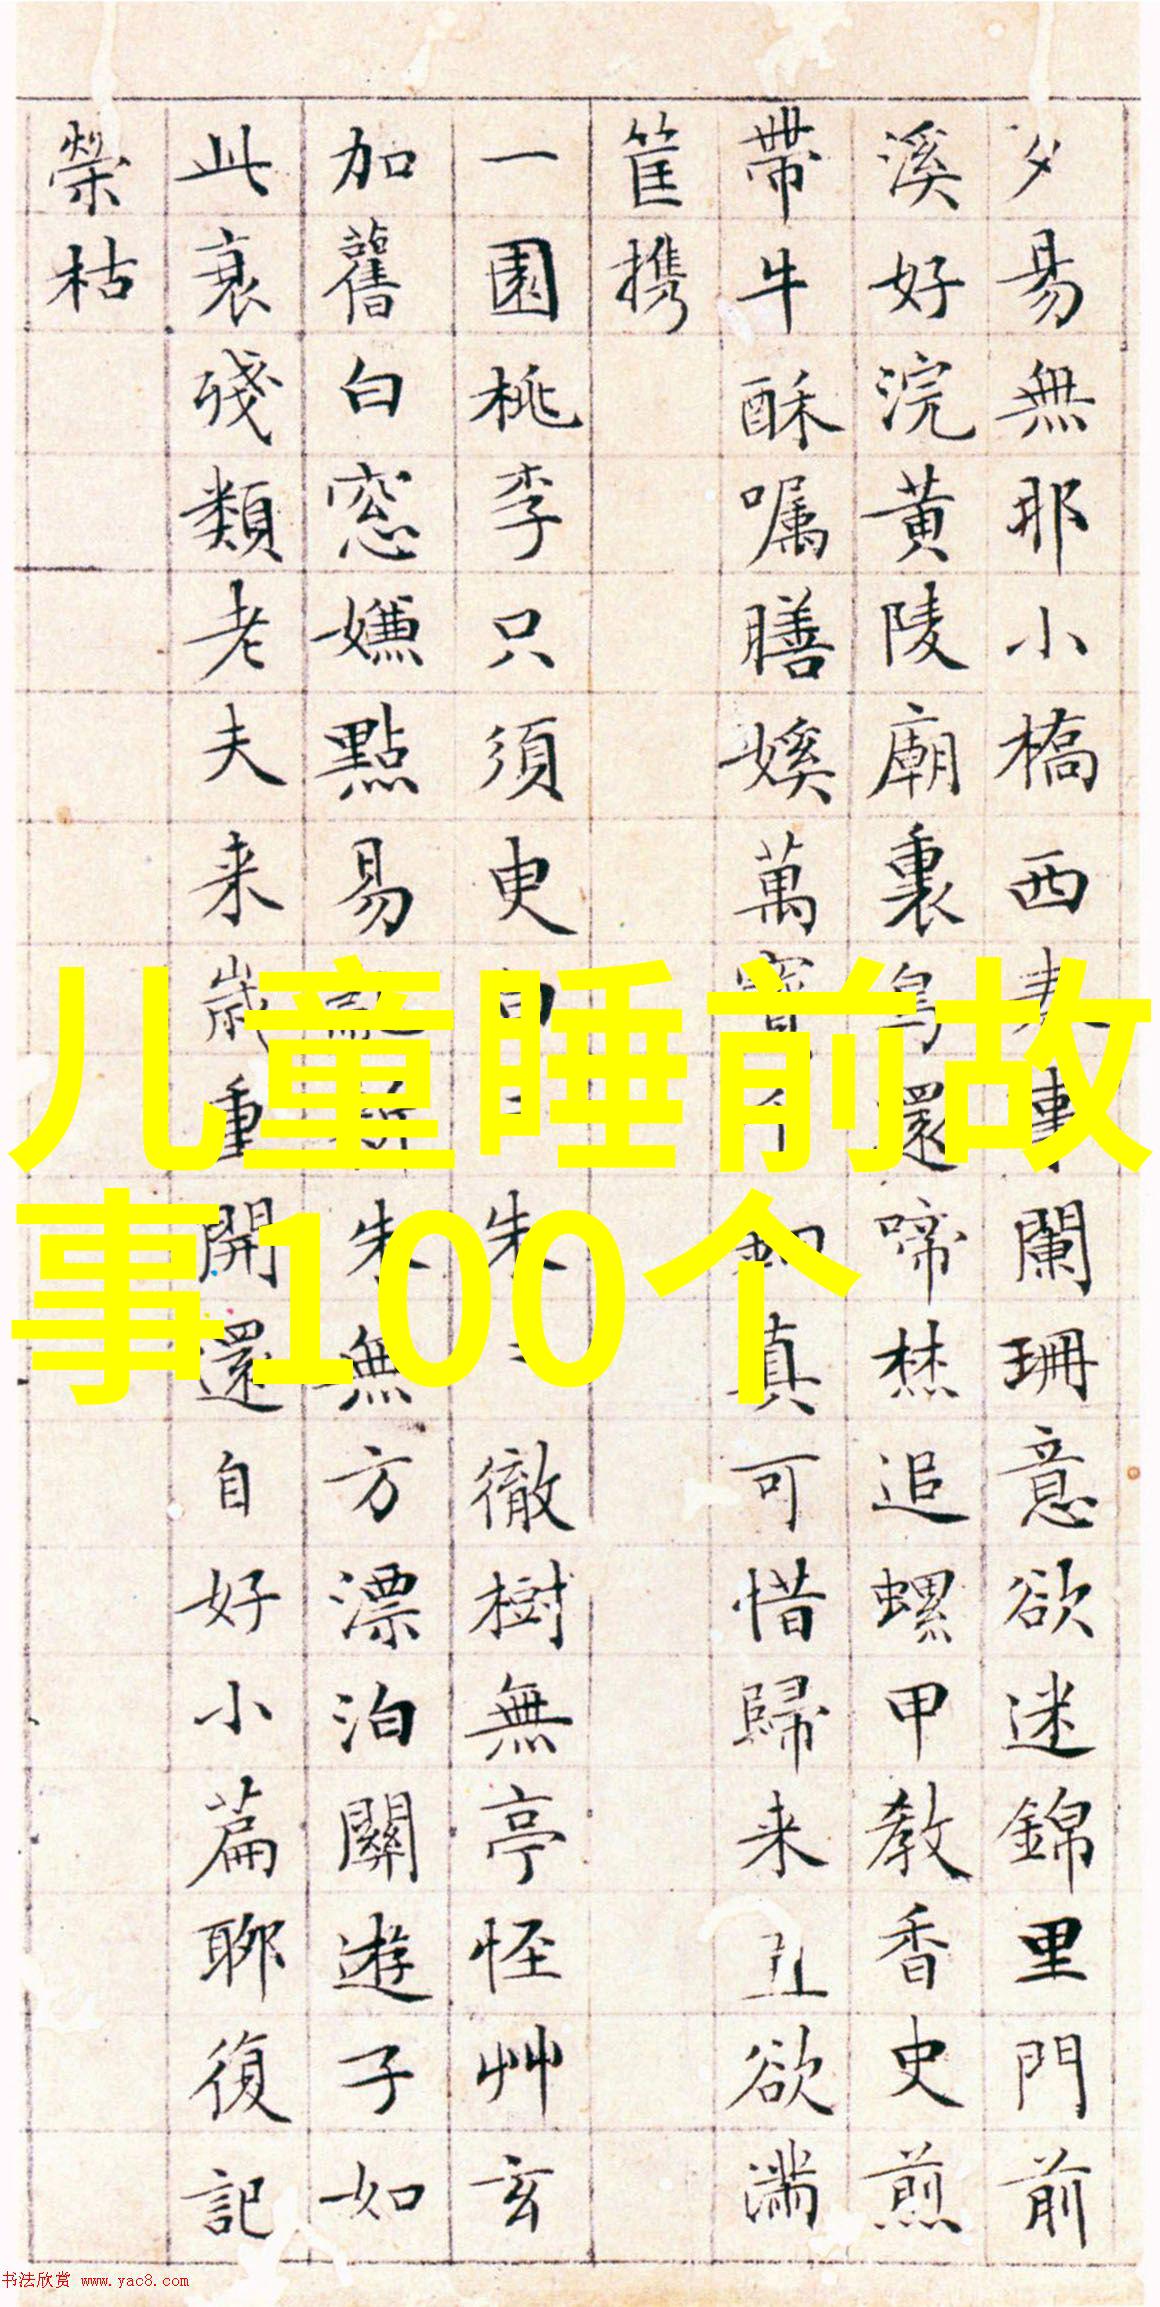 夕易無耶小橋西春事闌珊意欲迷錦里門前
溪好浣黃陵廟裏鳥還啼楚追螺甲教香史煎
帶牛酥嘱膳媛萬寶千釦真可惜歸来丑欲滿
筐携
一園桃李只須臾白朱徹樹無亭怪艸玄
加舊白窓嫌點易朱無方漂泊關遊子如
此衰殘類老夫来歲重開還自好小篇聊復記
榮枯
儿童睡前故
事100个
书法欣赏 www.yac8.com